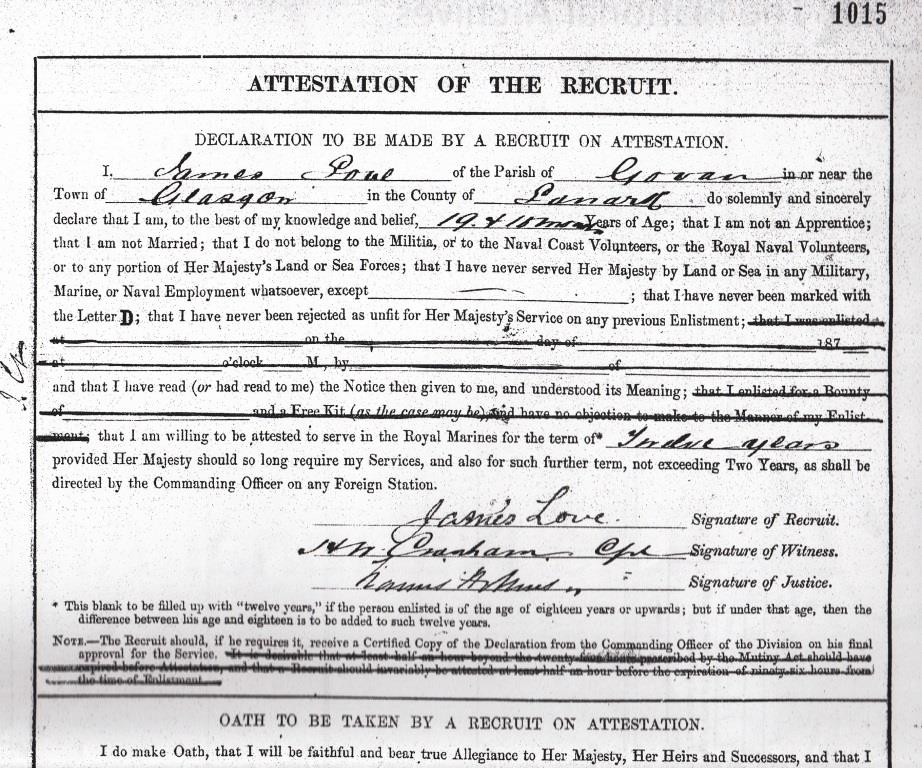 1015
ATTESTATION OF THE RECRUIT.
DECLARATION TO BE MADE BY A RECRUIT ON ATTESTATION.
I, James Love of the Parish of Govan in or near the
Town of Glasgow in the County of Lanark do solemnly and sincerely
declare that I am, to the best of my knowledge and belief, 19 & 10 mon Years of Age; that I am not an Apprentice;
that I am not Married; that I do not belong to the Militia, or to the Naval Coast Volunteers, or the Royal Naval Volunteers,
or to any portion of Her Majesty's Land or Sea Forces; that I have never served Her Majesty by Land or Sea in any Military,
Marine, or Naval Employment whatsoever, except ; that I have never been marked with
the Letter D; that I have never been rejected as unfit for Her Majesty's Service on any previous Enlistment; that I was enlisted
at on the day of 187
at o'clock M., by of
and that I have read (or had read to me) the Notice then given to me, and understood its Meaning; that I enlisted for a Bounty
of and a Free Kit (as the case may be), and have no objection to make to the Manner of my Enlist-
ment; that I am willing to be attested to serve in the Royal Marines for the term of* Twelve years
provided Her Majesty should so long require my Services, and also for such further term, not exceeding Two Years, as shall be
directed by the Commanding Officer on any Foreign Station.
James Love. Signature of Recruit.
Cpl Signature of Witness.
Signature of Justice.
* This blank to be filled up with "twelve years," if the person enlisted is of the age of eighteen years or upwards; but if under that age, then the
difference between his age and eighteen is to be added to such twelve years.
NOTE.—The Recruit should, if he requires it, receive a Certified Copy of the Declaration from the Commanding Officer of the Division on his final
approval for the Service. It is desirable that at least half an hour beyond the twenty-four hours prescribed by the Mutiny Act should have
expired before Attestation, and that a Recruit should invariably be attested at least half an hour before the expiration of ninety-six hours from
the time of Enlistment.
OATH TO BE TAKEN BY A RECRUIT ON ATTESTATION.
I do make Oath, that I will be faithful and bear true Allegiance to Her Majesty, Her Heirs and Successors, and that I